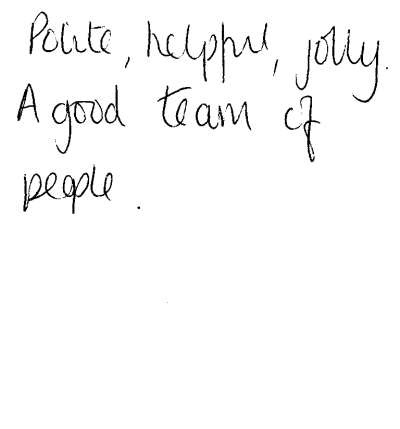 Polite, helpful, jolly.
A good team of
people.